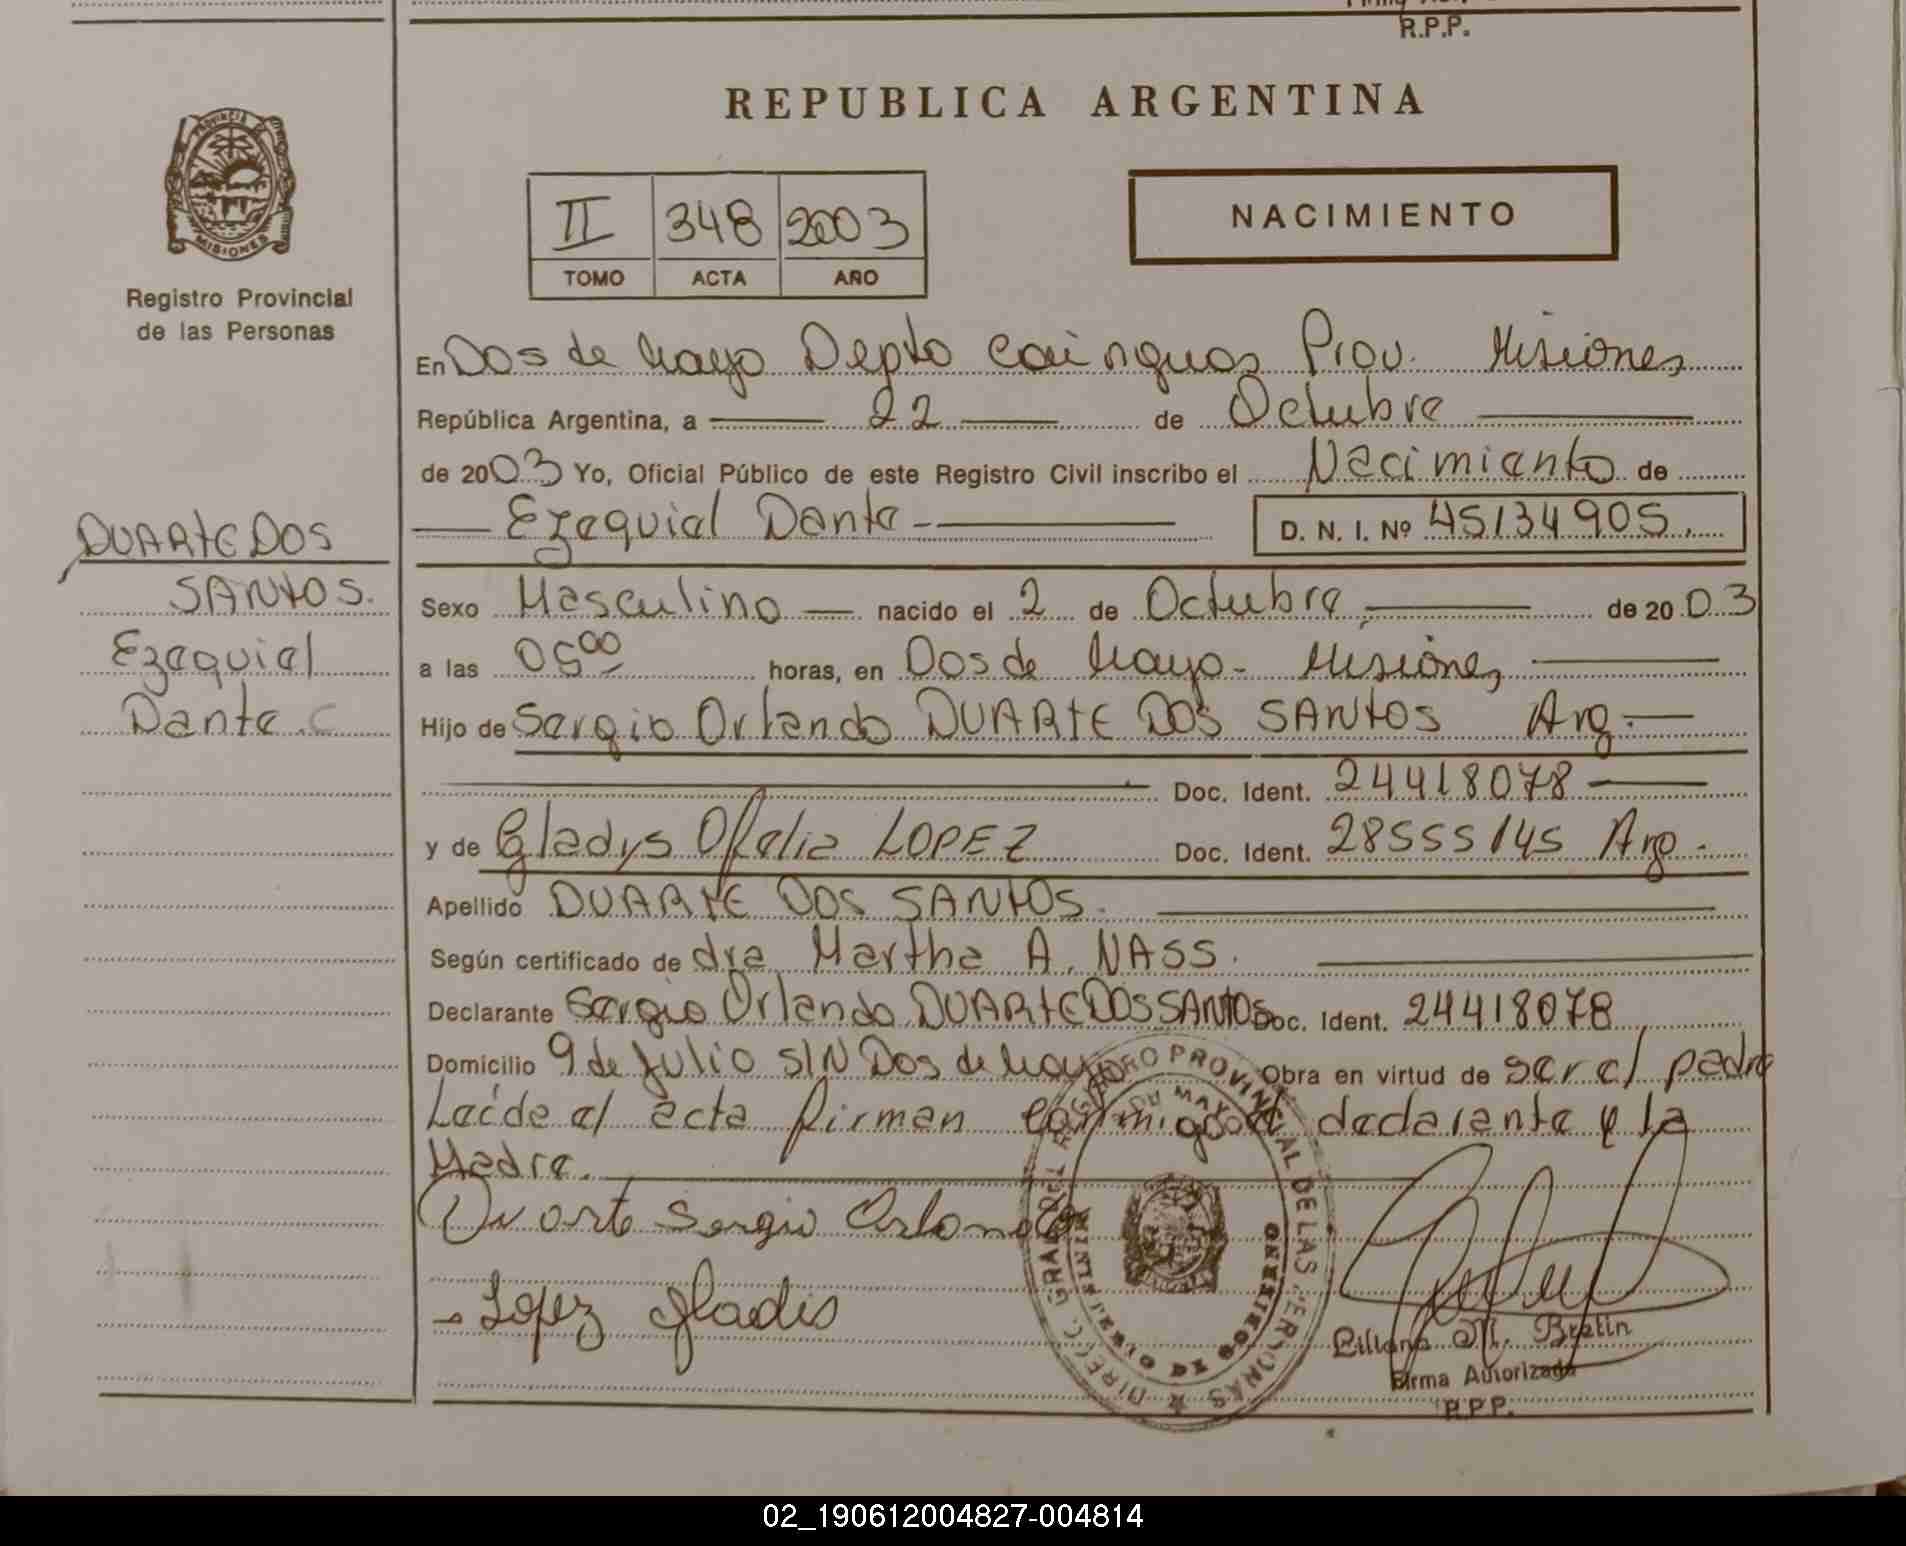 R.P.P.
REPUBLICA ARGENTINA
PROVINCIA DE
MISIONES
Registro Provincial
de las Personas
II 348 2003
TOMO ACTA AÑO
NACIMIENTO
En Dos de Mayo Depto Cainguas Prov. Misiones
República Argentina, a 22 de Octubre
de 2003 Yo, Oficial Público de este Registro Civil inscribo el Nacimiento de
Ezequiel Dante D. N. I. Nº 45134905.
DUARTE DOS
SANTOS.
Ezequiel
Dante
Sexo Masculino nacido el 2 de Octubre de 2003
a las 05⁰⁰ horas, en Dos de Mayo - Misiones
Hijo de Sergio Orlando DUARTE DOS SANTOS Arg.
Doc. Ident. 24418078
y de Gladys Ofelia LOPEZ Doc. Ident. 28555145 Arg.
Apellido DUARTE DOS SANTOS.
Según certificado de dra Martha A. NASS.
Declarante Sergio Orlando DUARTE DOS SANTOS Doc. Ident. 24418078
Domicilio 9 de Julio S/N Dos de Mayo Obra en virtud de ser el padre
Leíde el acta firman conmigo el declarante y la
Madre.
Duarte Sergio Orlando
- Lopez Gladis
DIREC. GRAL. DEL REGISTRO PROVINCIAL DE LAS PERSONAS
Liliana M. Bretin
Firma Autorizada
R.P.P.
02_190612004827-004814